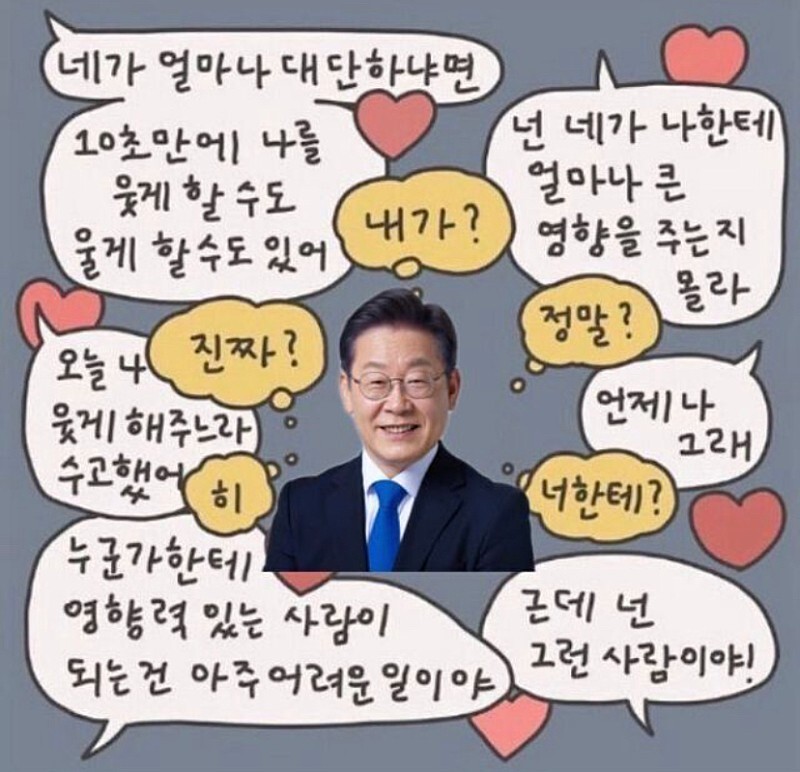 네가 얼마나 대단하냐면
10초만에 나를
웃게 할 수도
울게 할 수도 있어
내가?
넌 네가 나한테
얼마나 큰
영향을 주는지
몰라
진짜?
정말?
오늘 나
웃게 해주느라
수고했어
히
언제나
그래
너한테?
누군가한테
영향력 있는 사람이
되는건 아주 어려운 일이야
근데 넌
그런 사람이야!